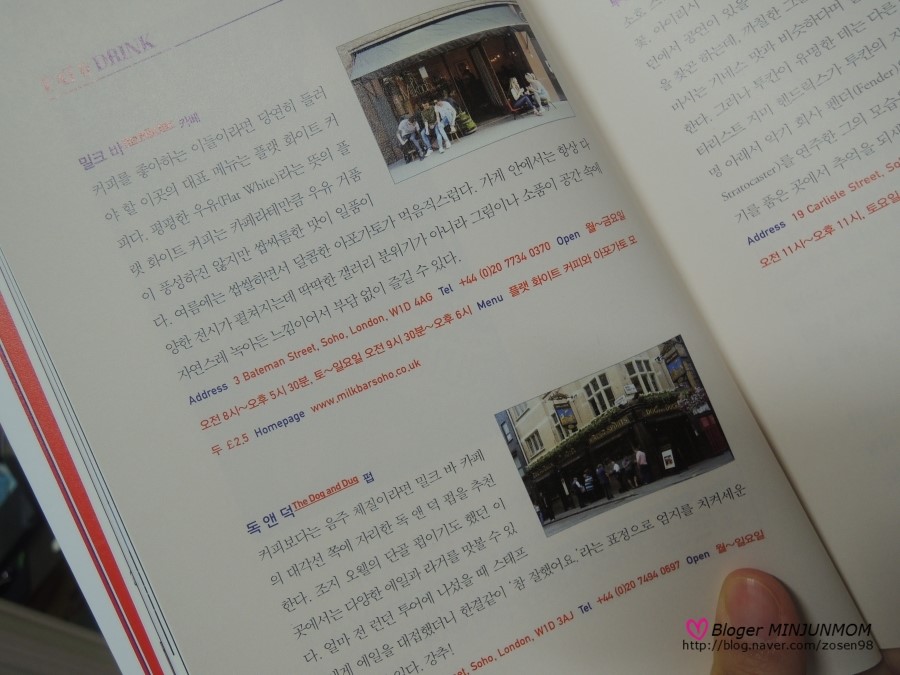 EAT & DRINK
밀크 바 카페
커피를 좋아하는 이들이라면 당연히 들러
야 할 이곳의 대표 메뉴는 플랫 화이트 커
피다. 평평한 우유(Flat White)라는 뜻의 플
랫 화이트 커피는 카페라테만큼 우유 거품
이 풍성하진 않지만 쌉싸름한 맛이 일품이
다. 여름에는 쌉쌀하면서 달콤한 아포가토가 먹음직스럽다. 가게 안에서는 항상 다
양한 전시가 펼쳐지는데 딱딱한 갤러리 분위기가 아니라 그림이나 소품이 공간 속에
자연스레 녹아든 느낌이어서 부담 없이 즐길 수 있다.
Address 3 Bateman Street, Soho, London, W1D 4AG Tel +44 (0)20 7734 0370 Open 월~금요일
오전 8시~오후 5시 30분, 토~일요일 오전 9시 30분~오후 6시 Menu 플랫 화이트 커피와 아포가토 모
두 £2.5 Homepage www.milkbarsoho.co.uk
독 앤 덕 The Dog and Dug 펍
커피보다는 음주 체질이라면 밀크 바 카페
의 대각선 쪽에 자리한 독 앤 덕 펍을 추천
한다. 조지 오웰의 단골 펍이기도 했던 이
곳에서는 다양한 에일과 라거를 맛볼 수 있
다. 얼마 전 런던 투어에 나섰을 때 스태프
에게 에일을 대접했더니 한결같이 '참 잘했어요.'라는 표정으로 엄지를 치켜세운
있다. 강추!
Street, Soho, London, W1D 3AJ Tel +44 (0)20 7494 0697 Open 월~일요일
소호 스
꽃, 아이리시
단에서 공연이 있을
을 찾곤 하는데, 까칠한 그
마시는 기네스 맛과 비슷하다며
한다. 그러나 투칸이 유명한 데는 다른
타리스트 지미 헨드릭스가 투칸의 지
명 아래서 악기 회사 펜더(Fender)
Stratocaster)를 연주한 그의 모습을
기를 품은 곳에서 추억을 되새
Address 19 Carlisle Street, So
오전 11시~오후 11시, 토요일
Bloger MINJUNMOM
http://blog.naver.com/zosen98